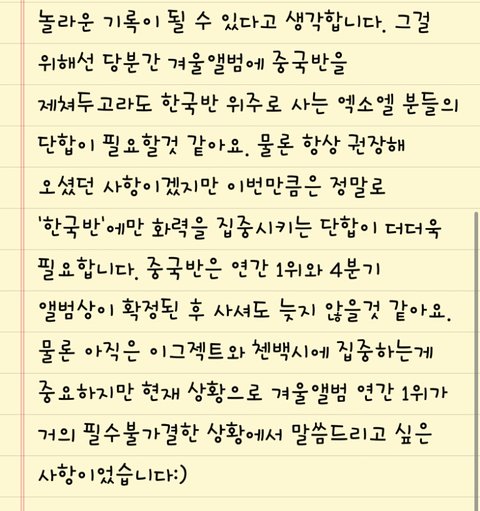 놀라운 기록이 될 수 있다고 생각합니다. 그걸
위해선 당분간 겨울앨범에 중국반을
제쳐두고라도 한국반 위주로 사는 엑소엘 분들의
단합이 필요할것 같아요. 물론 항상 권장해
오셨던 사항이겠지만 이번만큼은 정말로
'한국반'에만 화력을 집중시키는 단합이 더더욱
필요합니다. 중국반은 연간 1위와 4분기
앨범상이 확정된 후 사셔도 늦지 않을것 같아요.
물론 아직은 이그젝트와 첸백시에 집중하는게
중요하지만 현재 상황으로 겨울앨범 연간 1위가
거의 필수불가결한 상황에서 말씀드리고 싶은
사항이었습니다:)